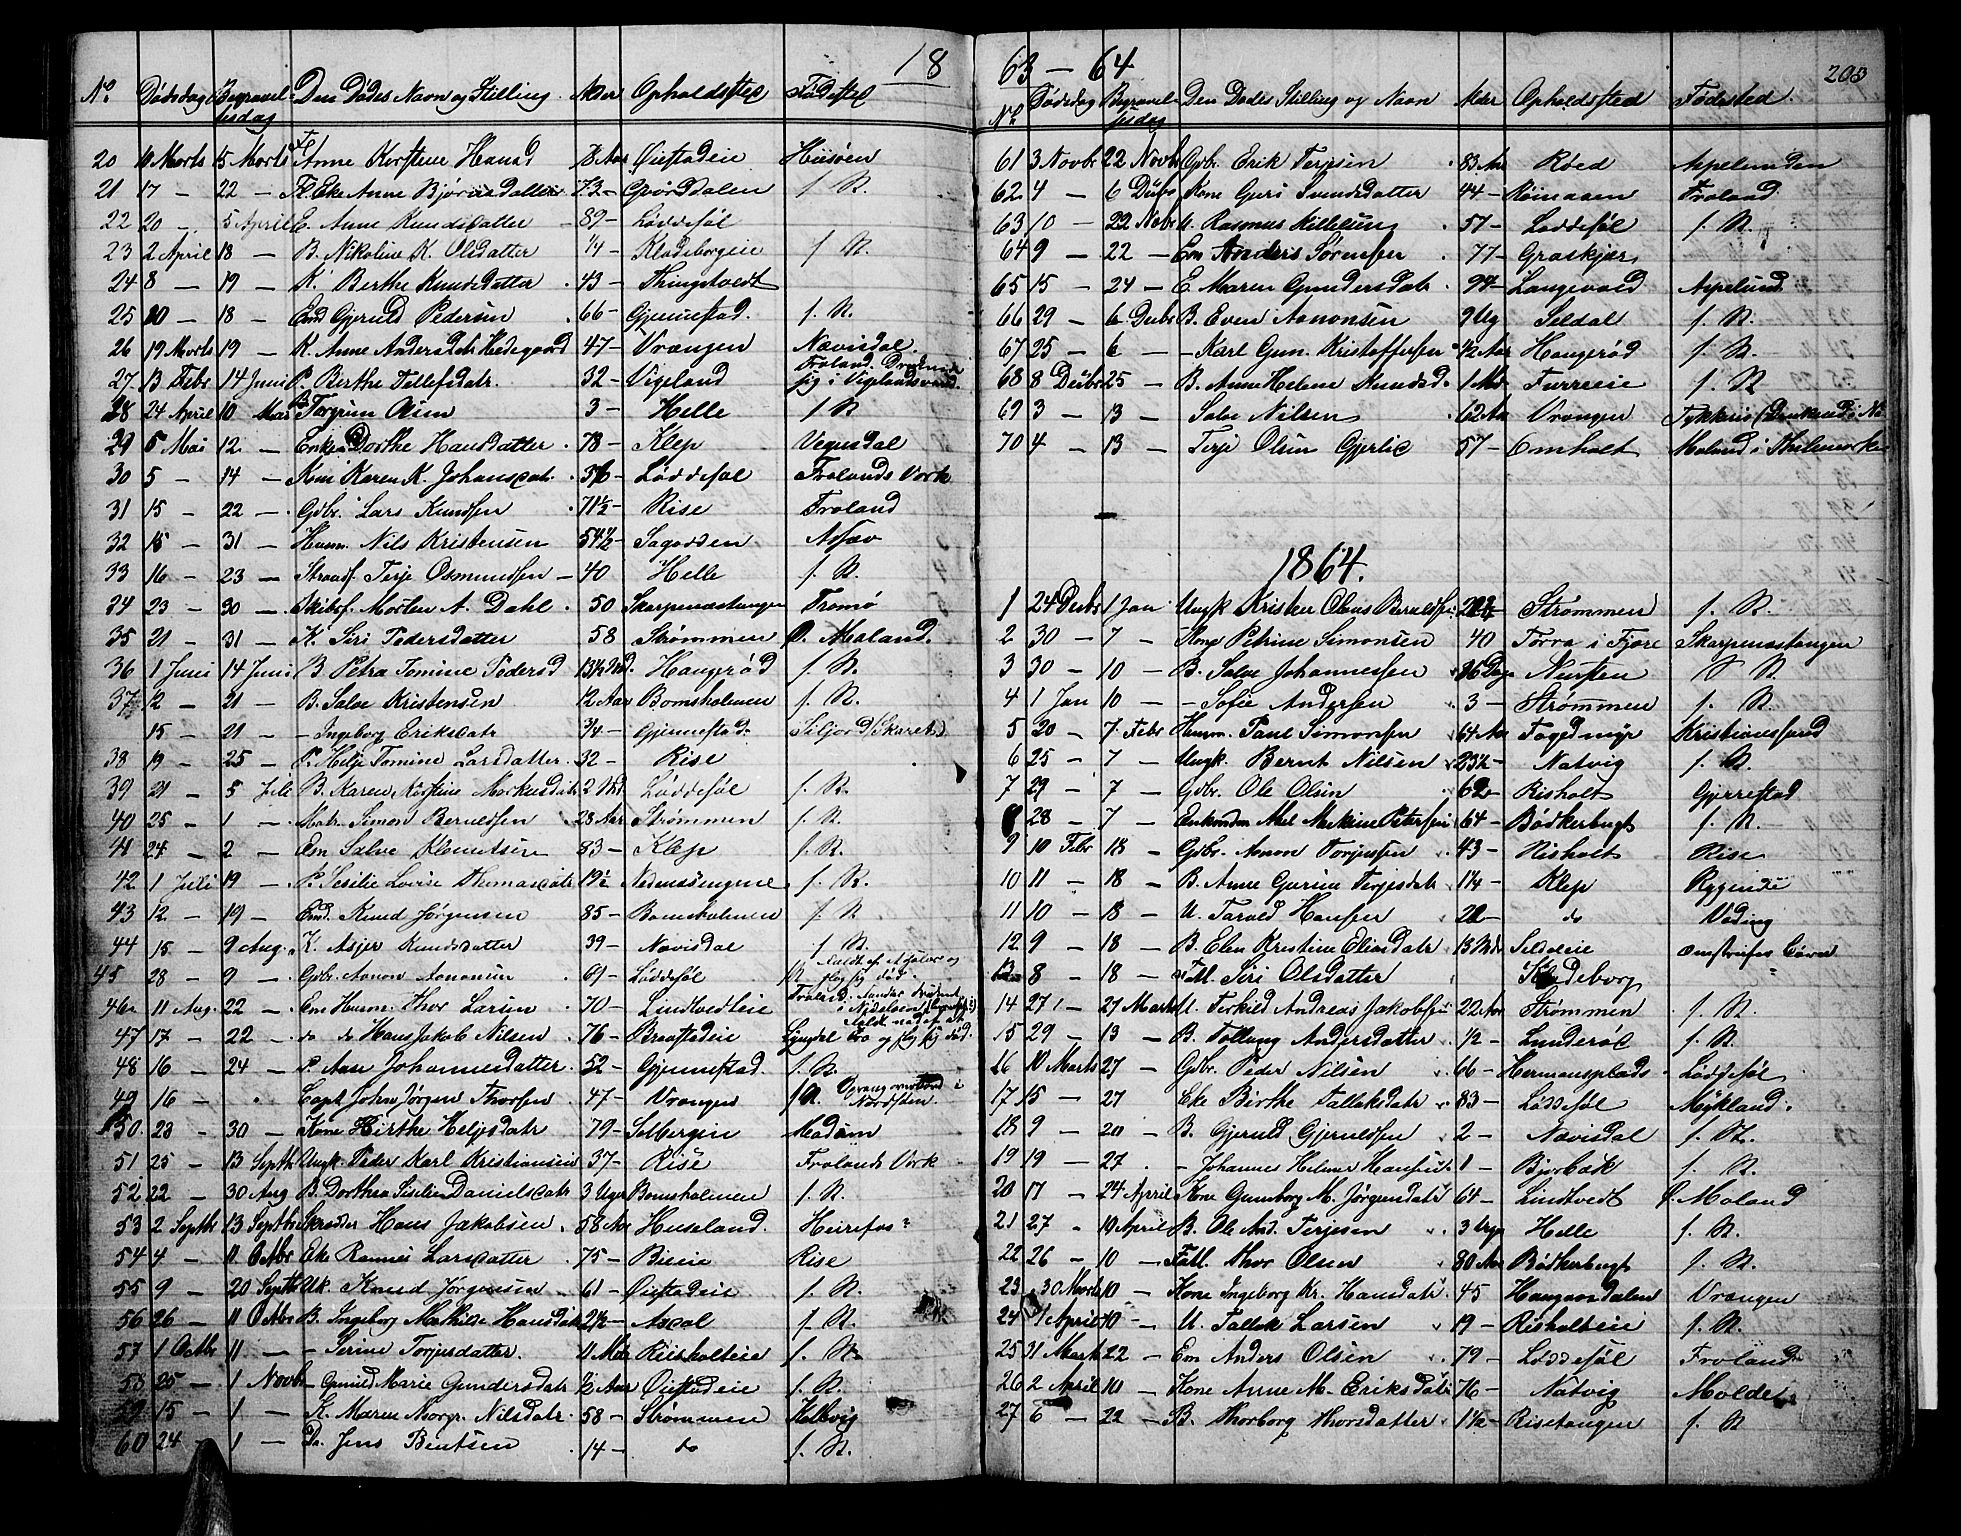 18
No Dødsdag Begravelsesdag Den Dødes Navn og Stilling Alder Opholdssted Fødested
20 11 Marts 15 Marts Anne Kirstine 78 Aar Øiestadeie Hiisøen
21 17 — 22 — Eke Anne Bjørnsdatter 73 — f. St.
22 20 — 5 April E. Anne Knudsdatter 89 — Løddesøl
23 2 April 18 — B. Nikoline K. Olsdatter 1/4 — Klodeborgeie f. St.
24 8 — 19 — K. Berthe Knudsdatter 43 — Thingstvedt
25 10 — 18 — Emd Gjeruld Pedersen 66 — Gjennestad f. St.
26 19 Marts 19 — K. Anne Andersdatr Hedegaard 47 — Vrangen Nævisdal
27 13 Febr 14 Juni P. Berthe Tellefsdatr. 32 — Vigeland Froland. Druknede sig i Vigelandsvand
28 24 April 10 Mai B. Torgrim Olsen 3 — Helle f. St.
29 5 Mai 12 — Enke Dorthe Hansdatter 78 — Klep Vegusdal
30 5 — 14 — Kone Karen K. Johansdatr 36 — Løddesøl Frolands Værk
31 15 — 22 — Gdbr. Lars Knudsen 71½ — Rise Froland
32 15 — 31 — Huusm. Nils Kristensen 54½ — Sagodden
33 16 — 23 — Strandf. Terje Osmundsen 40 Helle f. St.
34 23 — 30 — Skibsf. Morten A. Dahl 50 Skarpenæstangen Tromø
35 21 — 31 — K. Siri Pedersdatter 58 Strømmen Ø. Moland
36 1 Juni 14 Juni B. Petra Tomine Pedersd 13½ Md. Haugerød f. St.
37 2 — 21 — B. Salve Kristensen 12 Aar Bomsholmen f. St.
15 — 21 — Ingeborg Eriksdatr 3/4 — Gjennestad Siljord (Skaret)
38 19 — 25 — P. Helje Tomine Larsdatter 32 — Rise
39 21 — 5 Juli B. Karen Kirstine Markusdatr 2 Md Løddesøl f. St.
40 25 — 1 — Matr. Simon Beruldsen 28 Aar Strømmen f. St.
41 24 — 2 — Em Salve Klemetsen 83 — Klep f. St.
42 1 Juli 19 — P. Sesilie Lovise Thomasdatr 19½ Nedenæsengene f. St.
43 12 — 19 — Emd. Knud Jørgensen 85 — Bomsholmen f. St.
44 15 — 9 Aug. K. Asjer Knudsdatter 39 — Navisdal f. St.
45 28 — 9 — Gdbr. Aanon Aanonsen 69 — Løddesøl
46 11 Aug. 22 — Em Huusm. Thor Larsen 70 — Lindtvedteie Froland.
47 17 — 22 — do do Hans Jakob Nilsen 76 — Braastadeie Lyngdal
48 16 — 24 — P. Ane Johannesdatter 52 — Gjennestad f. St.
49 16 — " Capt. John Jørgen Thorsen 47 — Vrangen f. St. Sprang overbord i Nordsøen
50 23 — 30 — Kone Birthe Heljesdatr 79 — Solbergeie
51 25 — 13 Septb Ungk. Peder Karl Kristiansen 37 — Rise Frolands Værk
52 22 — 30 Aug B. Dorthea Danielsdatr 3 Uger Bomsholmen f. St.
53 2 Septb 13 Septb Skredder Hans Jakobsen 58 Aar Huseland Heirefos
54 4 — 11 Octbr Eke Larsdatter 75 — Bieie Rise
55 9 — 20 Septb Uk. Knud Jørgensen 61 — Øiestadeie f. St.
56 26 — 11 Octbr B. Ingeborg Mathilde Hansdatr 2½ — Asdal f. St.
57 1 Octbr 11 — Serine Torjusdatter 11 Mdr Risholteie f. St.
58 25 — 1 Novb — Gunild Marie Gundersdatr ½ Aar Øiestadeie f. St.
59 15 — 1 — K. Maren Margr. Nilsdatr. 58 — Strømmen
60 24 — 1 — Jens Bentsen 14 — do f. St.
63 — 64
203
No Dødsdag Begravelsesdag Den Dødes Stilling og Navn Alder Opholdssted Fødested.
61 3 Novbr 22 Novbr Gdbr. Erik Terjesen 83 Aar Røed
62 4 — 6 Debr Kone Gjeri Svendsdatter 44 — Froland
63 10 — 22 Nobr U. Rasmus 57 — Løddesøl f. St.
64 9 — 22 — Em Anders Sørensen 77 — Graskjær
65 15 — 24 — E. Maren Gundersdatr 94 — Langevold
66 29 — 6 Debr B. Even Aanonsen 9 Ug Seldal f. St.
67 25 — 6 — Karl Gun. Kristoffersen ½ Aar Haugerød f. St.
68 8 Debr 25 — B. Anne Helene Knudsd. 1 Md. Furreeie f. St.
69 3 — 13 — Salve Nilsen 62 Aar Vrangen
70 4 — 13 — Terje Olsen Gjerlie 57 — Omholt Moland i Thelemarken
1864.
1 24 Debr 1 Jan Ungk Kristen Olaus Beruldsen Strømmen f. St.
2 30 — 7 — Kone Petrine Simonsen 40 Torra i Fjære Skarpenæstangen
3 30 — 10 — B. Salve Johannessen 15 Dage Nersten f. St.
4 1 Jan 10 — — Sofie Andersen 3 — Strømmen f. St.
5 20 — 7 Febr Huusm. Paul Simonsen 64 Aar Fogedmyr Kristianssand
6 25 — 7 — Ungk. Bernt Nilsen 23½ — Natvig f. St.
7 29 — 7 — Gdbr. Ole Olsen 62 — Risholt Gjerrestad
8 28 — 7 — Petersen 64 — Bødkerbugt f. St.
9 10 Febr 18 — Gdbr. Aanon Torjussen 43 — Risholt Rise
10 11 — 18 — B. Anne Gurine Terjesdatr 1¼ — Klep Rygeneie
11 10 — 18 — U. Tarald Hansen 22 — do
12 9 — 18 — B. Elen Kristine Eliasdatr 13 Mdr Seldaleie
8 — 18 — Fattl. Siri Olsdatter Klodeborg
14 27 — 27 Marts U. Terkild Andreas Jakobsen 22 Aar Strømmen f. St.
15 29 — 13 — B. Tollaug Andersdatter ½ — Lunderød f. St.
16 10 Marts 27 — Gdbr. Peder Nilsen 66 — Hermansplads Løddesøl
17 15 — 27 Eke Birthe Tallaksdatr 83 — Løddesøl Mykland
18 9 — 20 — B. Gjeruld Gjeruldsen 2 — Nævisdal f. St.
19 19 — 27 — Johanne Helene Hansen 1 — Bjorbæk f. St.
20 17 — 24 April Kone Gunnborg M. Jørgensdatr 64 — Lindtvedt Ø. Moland
21 27 — 10 April B. Ole And. Terjesen 3 Ug Helle f. St.
22 26 — 10 — Fattl. Thor Olsen 80 Aar Bødkerbugt f. St.
23 30 Marts 10 — Kone Ingeborg Kr. Hansdatr 45 Haugaasdalen Vrangen
24 1 April 10 — U. Tallak Larsen 19 — Risholteie f. St.
25 31 Marts 22 — Em Anders Olsen 79 — Løddesøl Froland
26 2 April 10 — Kone Anne M. Eriksdatr 76 — Natvig Molde
27 6 — 22 — B. Thorborg Thorsdatter 1½ — Risetangen f. St.